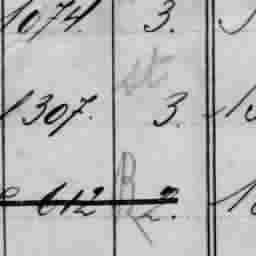 1074. 3.
st
1307. 3.
R
612 2.